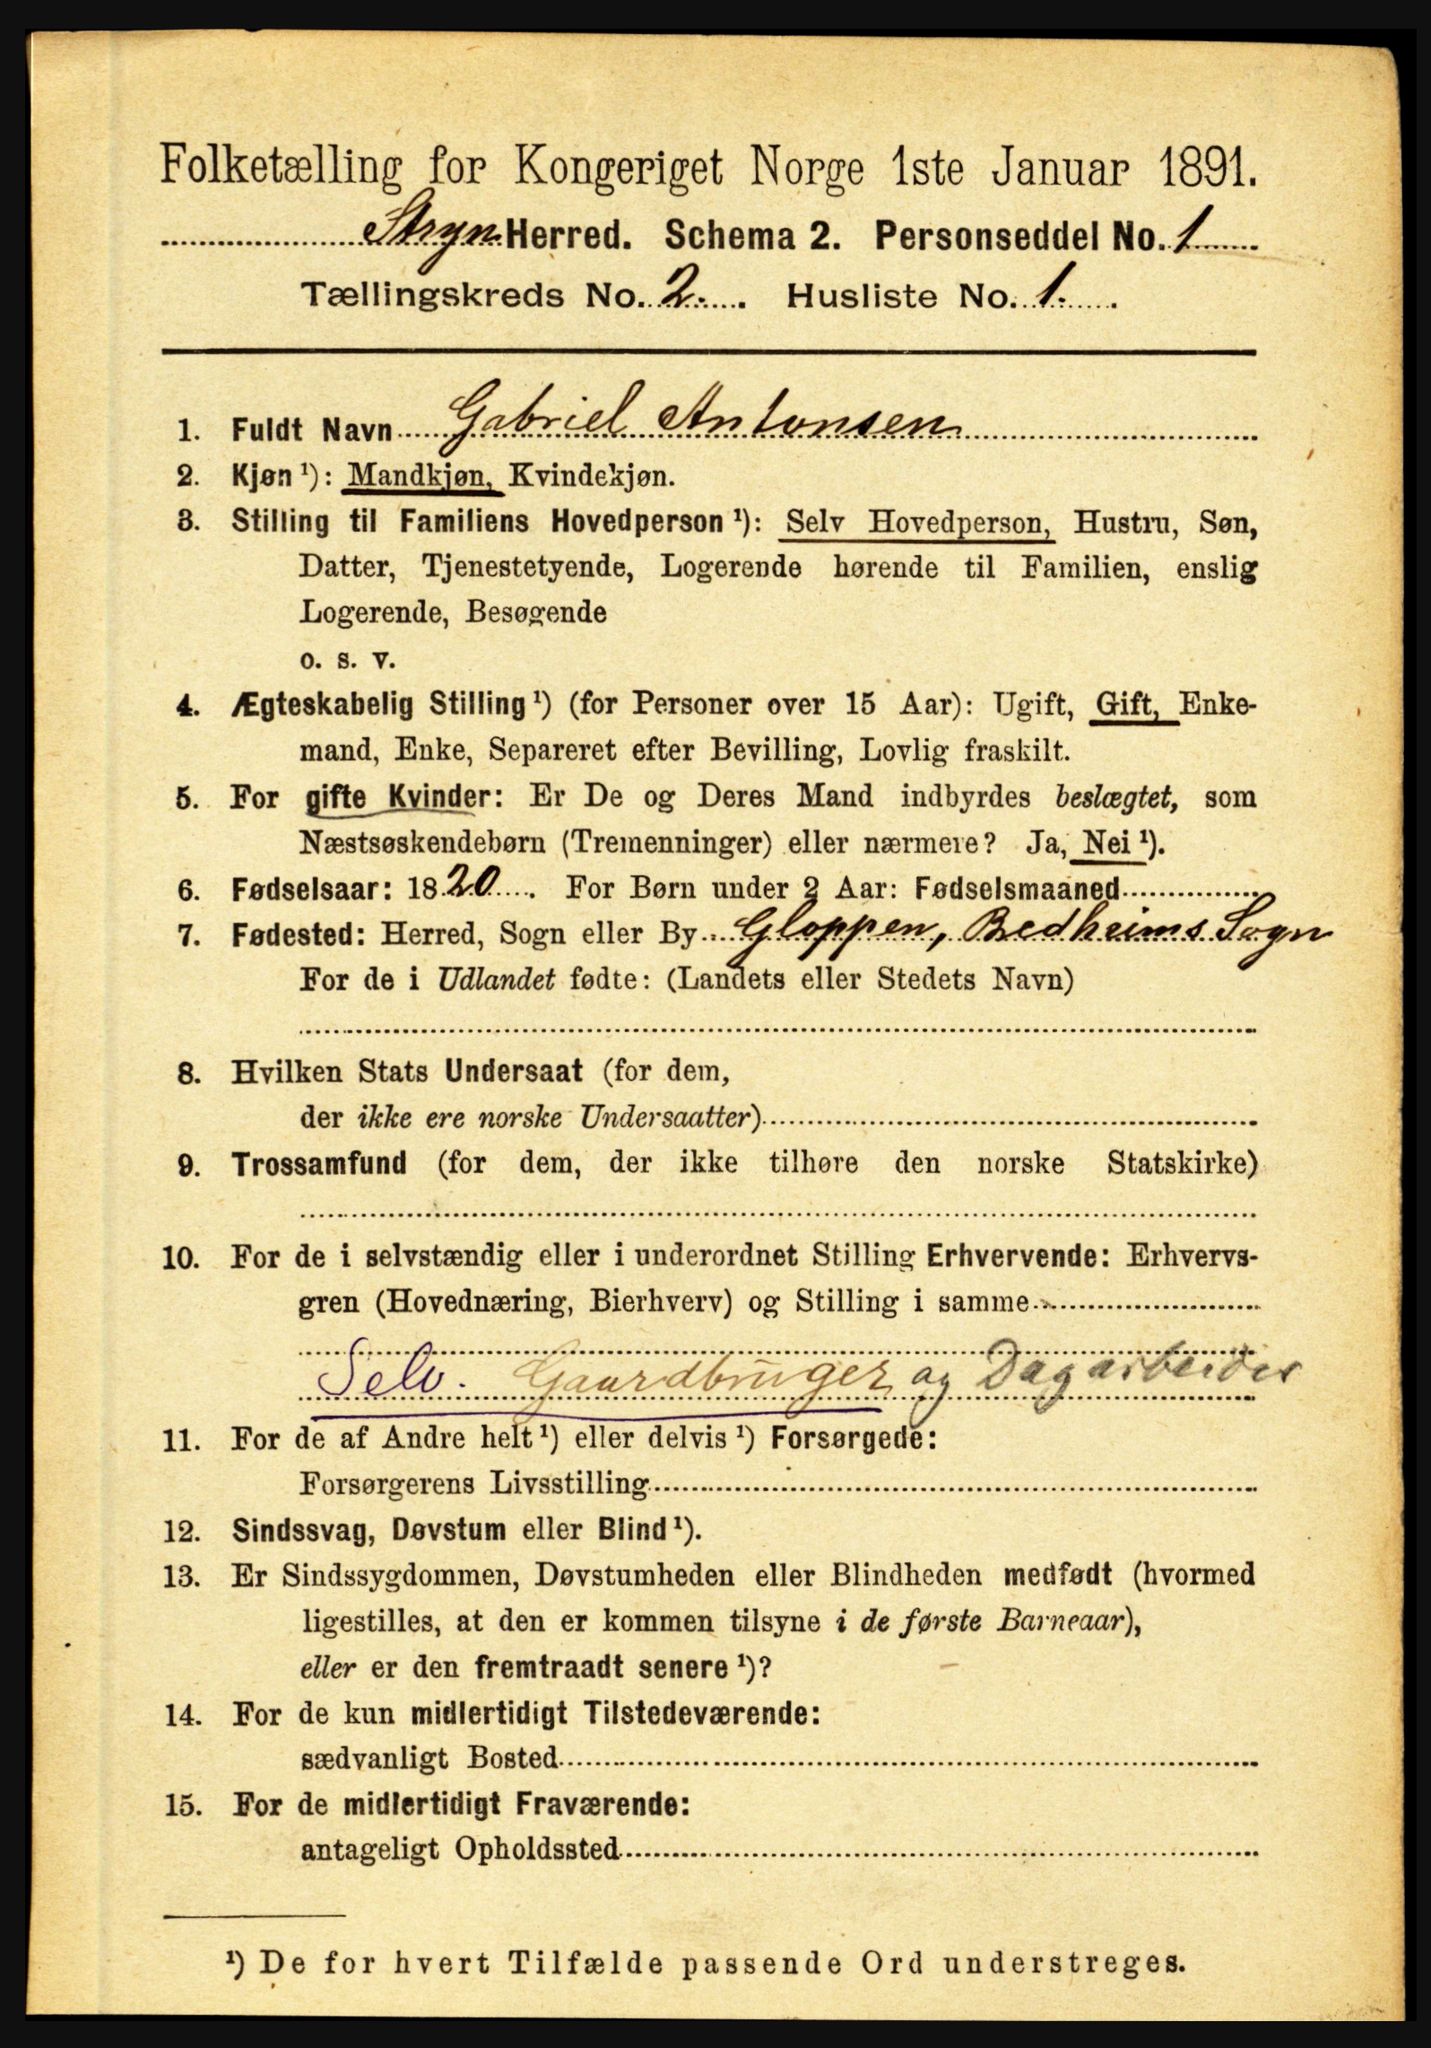 Folketælling for Kongeriget Norge 1ste Januar 1891.
Stryn Herred. Schema 2. Personseddel No. 1
Tællingskreds No. 2. Husliste No. 1.
1. Fuldt Navn Gabriel Antonsen
2. Kjøn ¹): Mandkjøn, Kvindekjøn.
3. Stilling til Familiens Hovedperson ¹): Selv Hovedperson, Hustru, Søn,
Datter, Tjenestetyende, Logerende hørende til Familien, enslig
Logerende, Besøgende
o. s. v.
4. Ægteskabelig Stilling ¹) (for Personer over 15 Aar): Ugift, Gift, Enke-
mand, Enke, Separeret efter Bevilling, Lovlig fraskilt.
5. For gifte Kvinder: Er De og Deres Mand indbyrdes beslægtet, som
Næstsøskendebørn (Tremenninger) eller nærmere? Ja, Nei ¹).
6. Fødselsaar: 1820. For Børn under 2 Aar: Fødselsmaaned
7. Fødested: Herred, Sogn eller By Gloppen, Bredheims Sogn
For de i Udlandet fødte: (Landets eller Stedets Navn)
8. Hvilken Stats Undersaat (for dem,
der ikke ere norske Undersaatter)
9. Trossamfund (for dem, der ikke tilhøre den norske Statskirke)
10. For de i selvstændig eller i underordnet Stilling Erhvervende: Erhvervs-
gren (Hovednæring, Bierhverv) og Stilling i samme
Selv. Gaardbruger og Dagarbeider
11. For de af Andre helt ¹) eller delvis ¹) Forsørgede:
Forsørgerens Livsstilling
12. Sindssvag, Døvstum eller Blind ¹).
13. Er Sindssygdommen, Døvstumheden eller Blindheden medfødt (hvormed
ligestilles, at den er kommen tilsyne i de første Barneaar),
eller er den fremtraadt senere ¹)?
14. For de kun midlertidigt Tilstedeværende:
sædvanligt Bosted
15. For de midlertidigt Fraværende:
antageligt Opholdssted
¹) De for hvert Tilfælde passende Ord understreges.